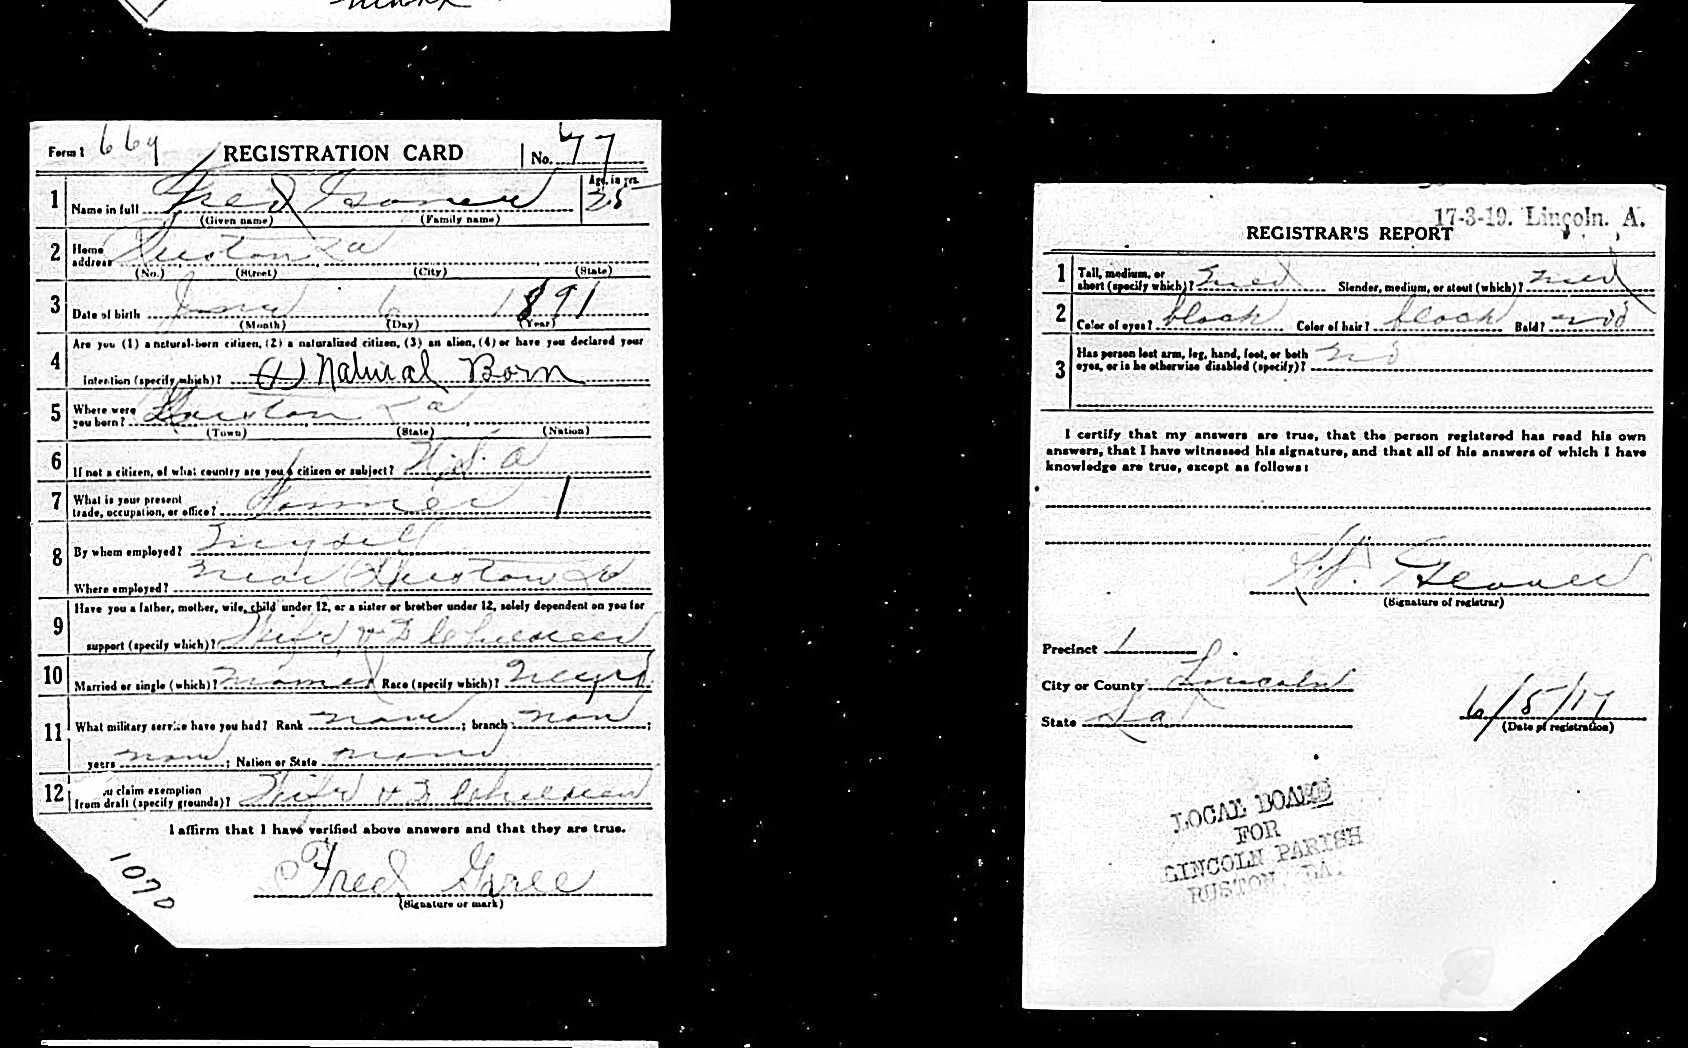 Form 1 669 REGISTRATION CARD No. 77
1 Name in full Fred
Age, in yrs. 25
(Given name) (Family name)
2 Home address Ruston La
(No.) (Street) (City) (State)
3 Date of birth June 6 1891
(Month) (Day) (Year)
4 Are you (1) a natural-born citizen, (2) a naturalized citizen, (3) an alien, (4) or have you declared your
intention (specify which)? (1) Natural Born
5 Where were you born? Ruston La
(Town) (State) (Nation)
6 If not a citizen, of what country are you a citizen or subject? U.S.A
7 What is your present trade, occupation, or office? Farmer 1
8 By whom employed? Myself
Where employed? near Ruston La
9 Have you a father, mother, wife, child under 12, or a sister or brother under 12, solely dependent on you for
support (specify which)? Wife &
10 Married or single (which)? Married Race (specify which)? Negro
11 What military service have you had? Rank none ; branch non ;
years none ; Nation or State none
12 ou claim exemption from draft (specify grounds)? Wife &
I affirm that I have verified above answers and that they are true.
Fred
(Signature or mark)
1070
17-3-19. Lincoln. A.
REGISTRAR'S REPORT
1 Tall, medium, or short (specify which)? Med Slender, medium, or stout (which)? Med
2 Color of eyes? black Color of hair? black Bald? no
3 Has person lost arm, leg, hand, foot, or both eyes, or is he otherwise disabled (specify)? no
I certify that my answers are true, that the person registered has read his own
answers, that I have witnessed his signature, and that all of his answers of which I have
knowledge are true, except as follows:
(Signature of registrar)
Precinct 1
City or County Lincoln
State La
6/5/17
(Date of registration)
LOCAL BOARD
FOR
LINCOLN PARISH
RUSTON, LA.